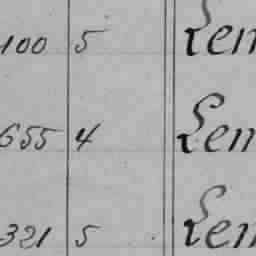 100 5 Lem
655 4 Lem
321 5 Lem